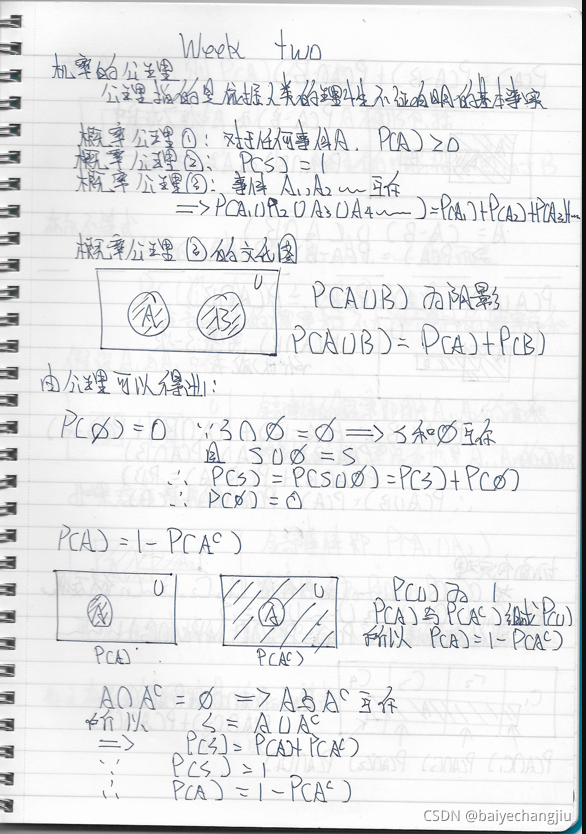 Week two
机率的公理
公理指的是依据人类的理性不证自明的基本事实
概率公理①: 对于任何事件A, P(A)≥0
概率公理②: P(S)=1
概率公理③: 事件 A₁,A₂…… 互斥
=> P(A₁∪A₂∪A₃∪A₄……)=P(A₁)+P(A₂)+P(A₃)+…
概率公理③的文氏图
U
A B
P(A∪B) 为阴影
P(A∪B)= P(A)+P(B)
由公理可以得出:
P(∅)=0 ∵S∩∅=∅ => S和∅互斥
且 S∪∅=S
∴ P(S)=P(S∪∅)=P(S)+P(∅)
∴ P(∅)=0
P(A)=1-P(Aᶜ)
U
A
P(A)
U
A
P(Aᶜ)
P(U)为 1
P(A)与P(Aᶜ)组成P(U)
所以 P(A)=1-P(Aᶜ)
A∩Aᶜ=∅ => A与Aᶜ互斥
所以 S=A∪Aᶜ
=> P(S)=P(A)+P(Aᶜ)
∵ P(S)=1
∴ P(A)=1-P(Aᶜ)
CSDN @baiyechangjiu